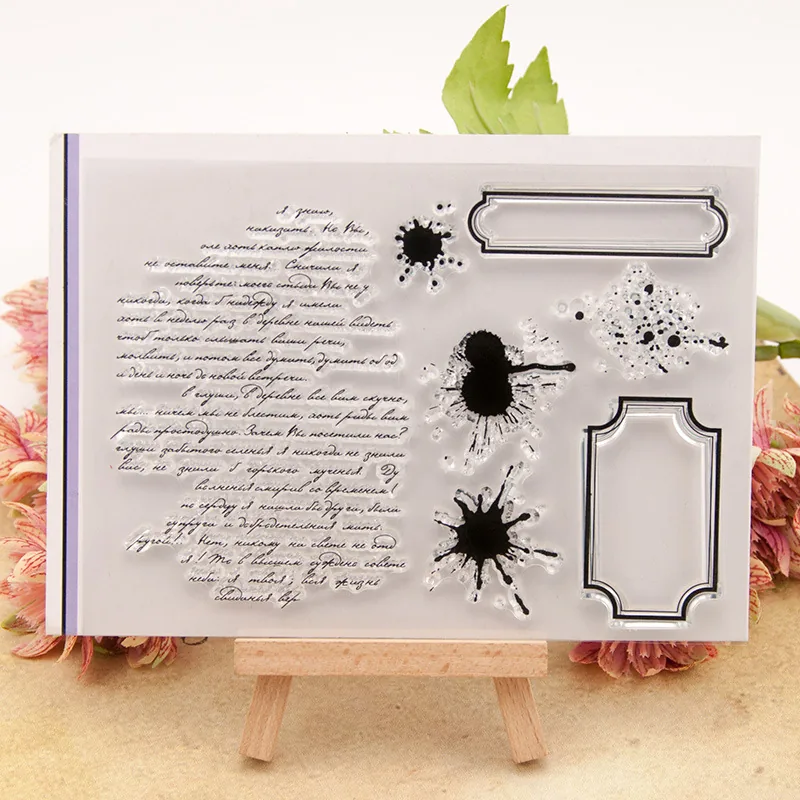 я знаю,
наказать. Но Вы,
оле хоть каплю жалости
не оставите меня. Сначала я
поверьте: моего стыда Вы не у
никогда, когда б надежду я имела
хоть в неделю раз в деревне нашей видеть
чтоб только слышать ваши речи,
молвить, и потом все думать, думать об од
и день и ночь до новой встречи.
в глуши, в деревне все вам скучно,
мы... ничем мы не блестим, хоть рады вам
рады простодушно. Зачем Вы посетили нас?
глуши забытого селенья я никогда не знала
вас, не знала б горького мученья. Ду
волненья смирив со временем!
по сердцу я нашла бы друга, была
супруга и добродетельная мать.
ругой! Нет, никому на свете не отд
я! То в вышнем суждено совете
неба: я твоя; вся жизнь
свиданья вер